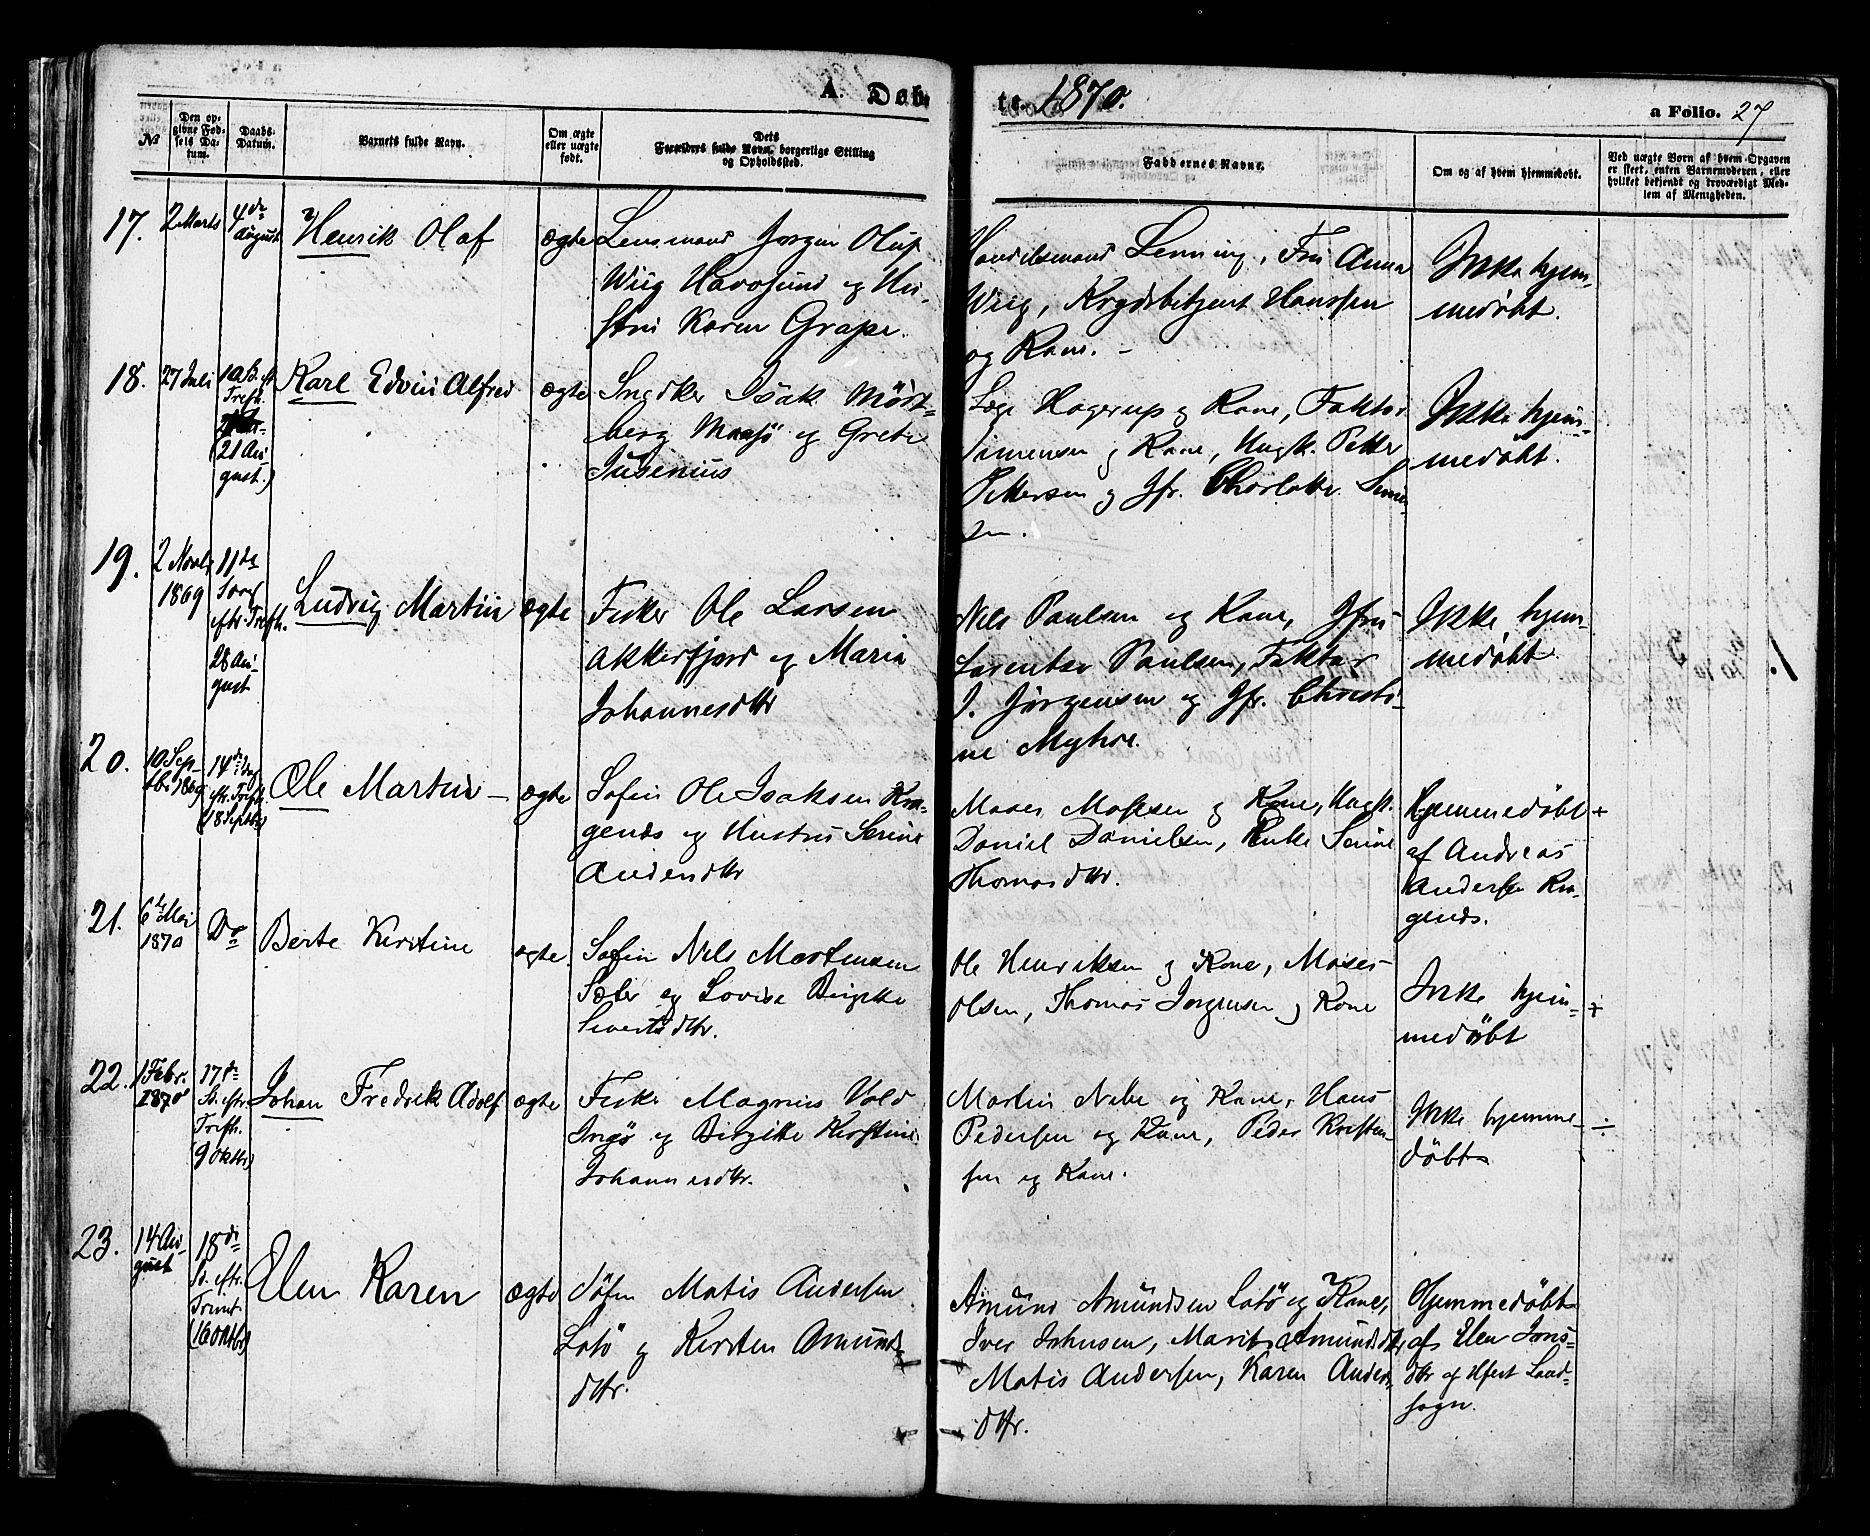 A. Døb-
te. 1870.
a Folio. 27
№
Den op-
givne Fød-
sels Da-
tum.
Daabs-
Datum.
Barnets fulde Navn.
Om ægte
eller uægte
født.
Dets
Forældres fulde Navn, borgerlige Stilling
og Opholdssted.
Faddernes Navne.
Om og af hvem hjemmedøbt.
Ved uægte Børn af hvem Opgaven
er skeet, enten Barnemoderen, eller
hvilket bekjendt og troværdigt Med-
lem af Menigheden.
17. 2 Marts 4de August Henrik Olaf ægte
Lensmand Jørgen Oluf
Wiig Havøsund og Hu-
stru Karen Grape.
Handelsmand Lenning, Fru Anna
Wiig, Krydsbetjent Hanssen
og Kone. -
Ikke hjem-
medøbt.
18. 27 Juli 10 S. eft. Trefh. (21 Au-
gust.)
Karl Edvin Alfred ægte
Snedker Isak Mört-
berg Maasø og Grete
Jusenius
Læge Hagerup og Kone, Faktor
Simensen og Kone, Ungk. Petter
Pettersen og Jfr. Charlotte Simen-
sen.
Ikke hjem-
medøbt.
19. 2 Novbr
1869
11de
Søng
eftr. Trefh.
28 Au-
gust
Ludvig Martin ægte
Fisker Ole Larsen
Akkerfjord og Maria
Johannesdtr
Nils Paulsen og Kone, Jfru
Lorentse Paulsen, Faktor
J. Jørgensen og Jfr. Christi-
ne Myhre.
Ikke hjem-
medøbt.
20. 10 Sep-
tbr 1869
14de Søg
eftr. Trefh.
(18 Septbr)
Ole Martin - ægte
Søfin Ole Isaksen Kra-
gends og Hustru Serine
Andersdtr
Moses Mossesen og Kone, Ungk.
Daniel Danielsen, Enke Serine
Thomasdtr.
Hjemmedøbt +
af Andreas
Anderssen Kra-
gends.
21. 6te Mai
1870
Do
Berte Kirstine ægte.
Søfin Nils Mortensen
Sæter og Lovise Birgitte
Sivertsdtr.
Ole Henriksen og Kone, Moses
Olsen, Thomas Jørgensen og Kone
Ikke hjem- +
medøbt
22. 1 Febr.
1870
17de
S. eftr.
Trefh.
(9 Oktbr)
Johan Fredrik Adolf ægte
Fisker Magnus Vold
Ingø og Birgitte Kirstine
Johannesdtr.
Martin Nebe og Kone, Hans
Pedersen og Kone, Peder Kristen-
sen og Kone.
Ikke hjemme- ÷
døbt
23. 14 Au-
gust
18de
S. eftr.
Trint.
(16 Oktbr)
Elen Karen ægte
Søfin Matis Andersen
Latø og Kirsten Amunds-
dtr.
Amund Amundsen Latø og Kone,
Iver Johnsen, Marit Amundsdtr,
Matis Andersen, Karen Anders-
dtr.
Hjemmedøbt
af Elen Jons-
dtr af Hfest Land-
sogn.